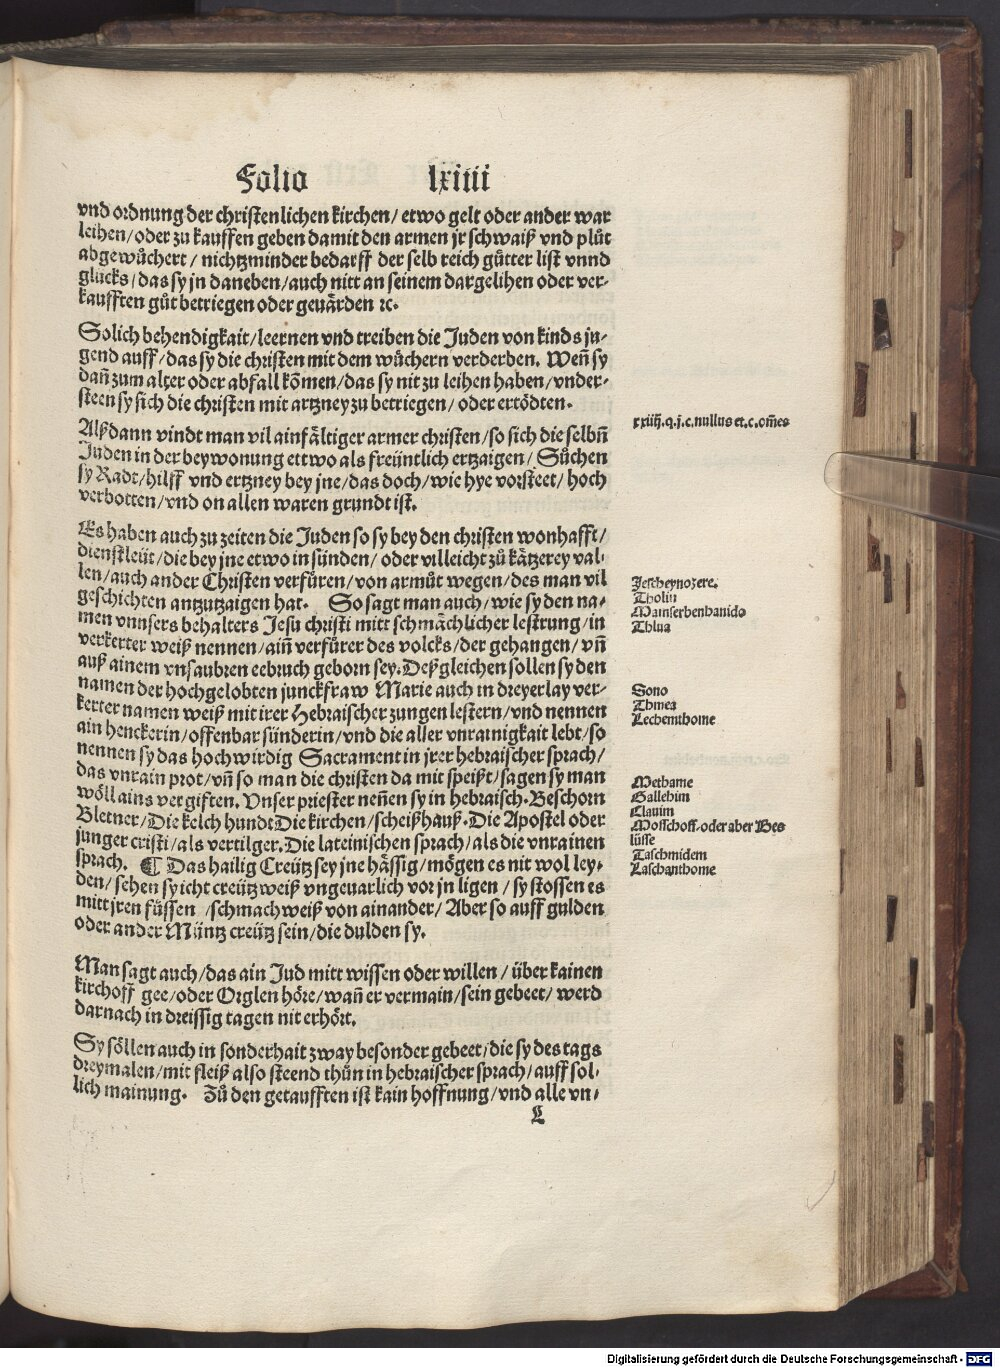 Folio lxiiii
vnd ordnung der christenlichen kirchen/ etwo gelt oder ander war
leihen/oder zu kauffen geben damit den armen jr schwaiß vnd plůt
abgewůchert/ nichtzminder bedarff der selb teich gůtter list vnnd
glücks/das sy jn daneben/auch nitt an seinem dargelihen oder ver-
kaufften gůt betriegen oder geuärden ꝛc.
Solich behendigkait/leernen vnd treiben die Juden von kinds ju-
gend auff/das sy die christen mit dem wůchern verderben. Weñ sy
dañ zum alter oder abfall kömen/das sy nit zu leihen haben/vnder-
steen sy sich die christen mit artzney zu betriegen/ oder ertödten.
xxiiij.q.j.c.nullus et.c.om̄es
Alßdann vindt man vil ainfältiger armer christen/so sich die selbñ
Juden in der beywonung ettwo als freüntlich ertzaigen/ Sůchen
sy Radt/hilff vnd ertzney bey jne/das doch/wie hye vorsteet/ hoch
verbotten/vnd on allen waren grundt ist.
Es haben auch zu zeiten die Juden so sy bey den christen wonhafft/
dienstleüt/die bey jne etwo in sünden/ oder villeicht zů kätzerey val-
len/auch ander Christen verfüren/von armůt wegen/des man vil
geschichten antzutzaigen hat. So sagt man auch/wie sy den na-
men vnnsers behalters Jesu christi mitt schmächlicher lestrung/in
verkerter weiß nennen/ainñ verfürer des volcks/der gehangen/vñ
auß ainem vnsaubren eebruch geborn sey.Deßgleichen sollen sy den
namen der hochgelobten junckfraw Marie auch in dreyerlay ver-
kerter namen weiß mit irer Hebraischer zungen lestern/vnd nennen
ain henckerin/offenbar sünderin/vnd die aller vnrainigkait lebt/so
nennen sy das hochwirdig Sacrament in jrer hebraischer sprach/
das vnrain prot/vñ so man die christen da mit speißt/sagen sy man
wöll ains vergiften. Vnser priester neñen sy in hebraisch.Beschorn
Bletner/Die kelch hundt Die kirchen/scheißhauß.Die Apostel oder
junger cristi/als vertilger.Die lateinischen sprach/als die vnrainen
sprach. ¶ Das hailig Creütz sey jne hässig/mögen es nit wol ley-
den/sehen sy icht creütz weiß vngeuarlich vor jn ligen/ sy stossen es
mitt jren füssen /schmachweiß von ainander/ Aber so auff gulden
oder ander Müntz creütz sein/die dulden sy.
Jescheynozere.
Tholiu
Mamserbenhanido
Thlua
Sono
Thmea
Lechemthome
Methame
Gallehim
Clauim
Mosschoff.oder aber Bes
lüsse
Taschmidem
Laschanthome
Man sagt auch/das ain Jud mitt wissen oder willen/ über kainen
kirchoff gee/oder Orglen höre/wañ er vermain/sein gebeet/ werd
darnach in dreissig tagen nit erhört.
Sy söllen auch in sonderhait zway besonder gebeet/die sy des tags
dreymalen/mit fleiß also steend thůn in hebraischer sprach/ auff sol-
lich mainung. Zů den getaufften ist kain hoffnung/vnd alle vn-
L
Digitalisierung gefördert durch die Deutsche Forschungsgemeinschaft - DFG